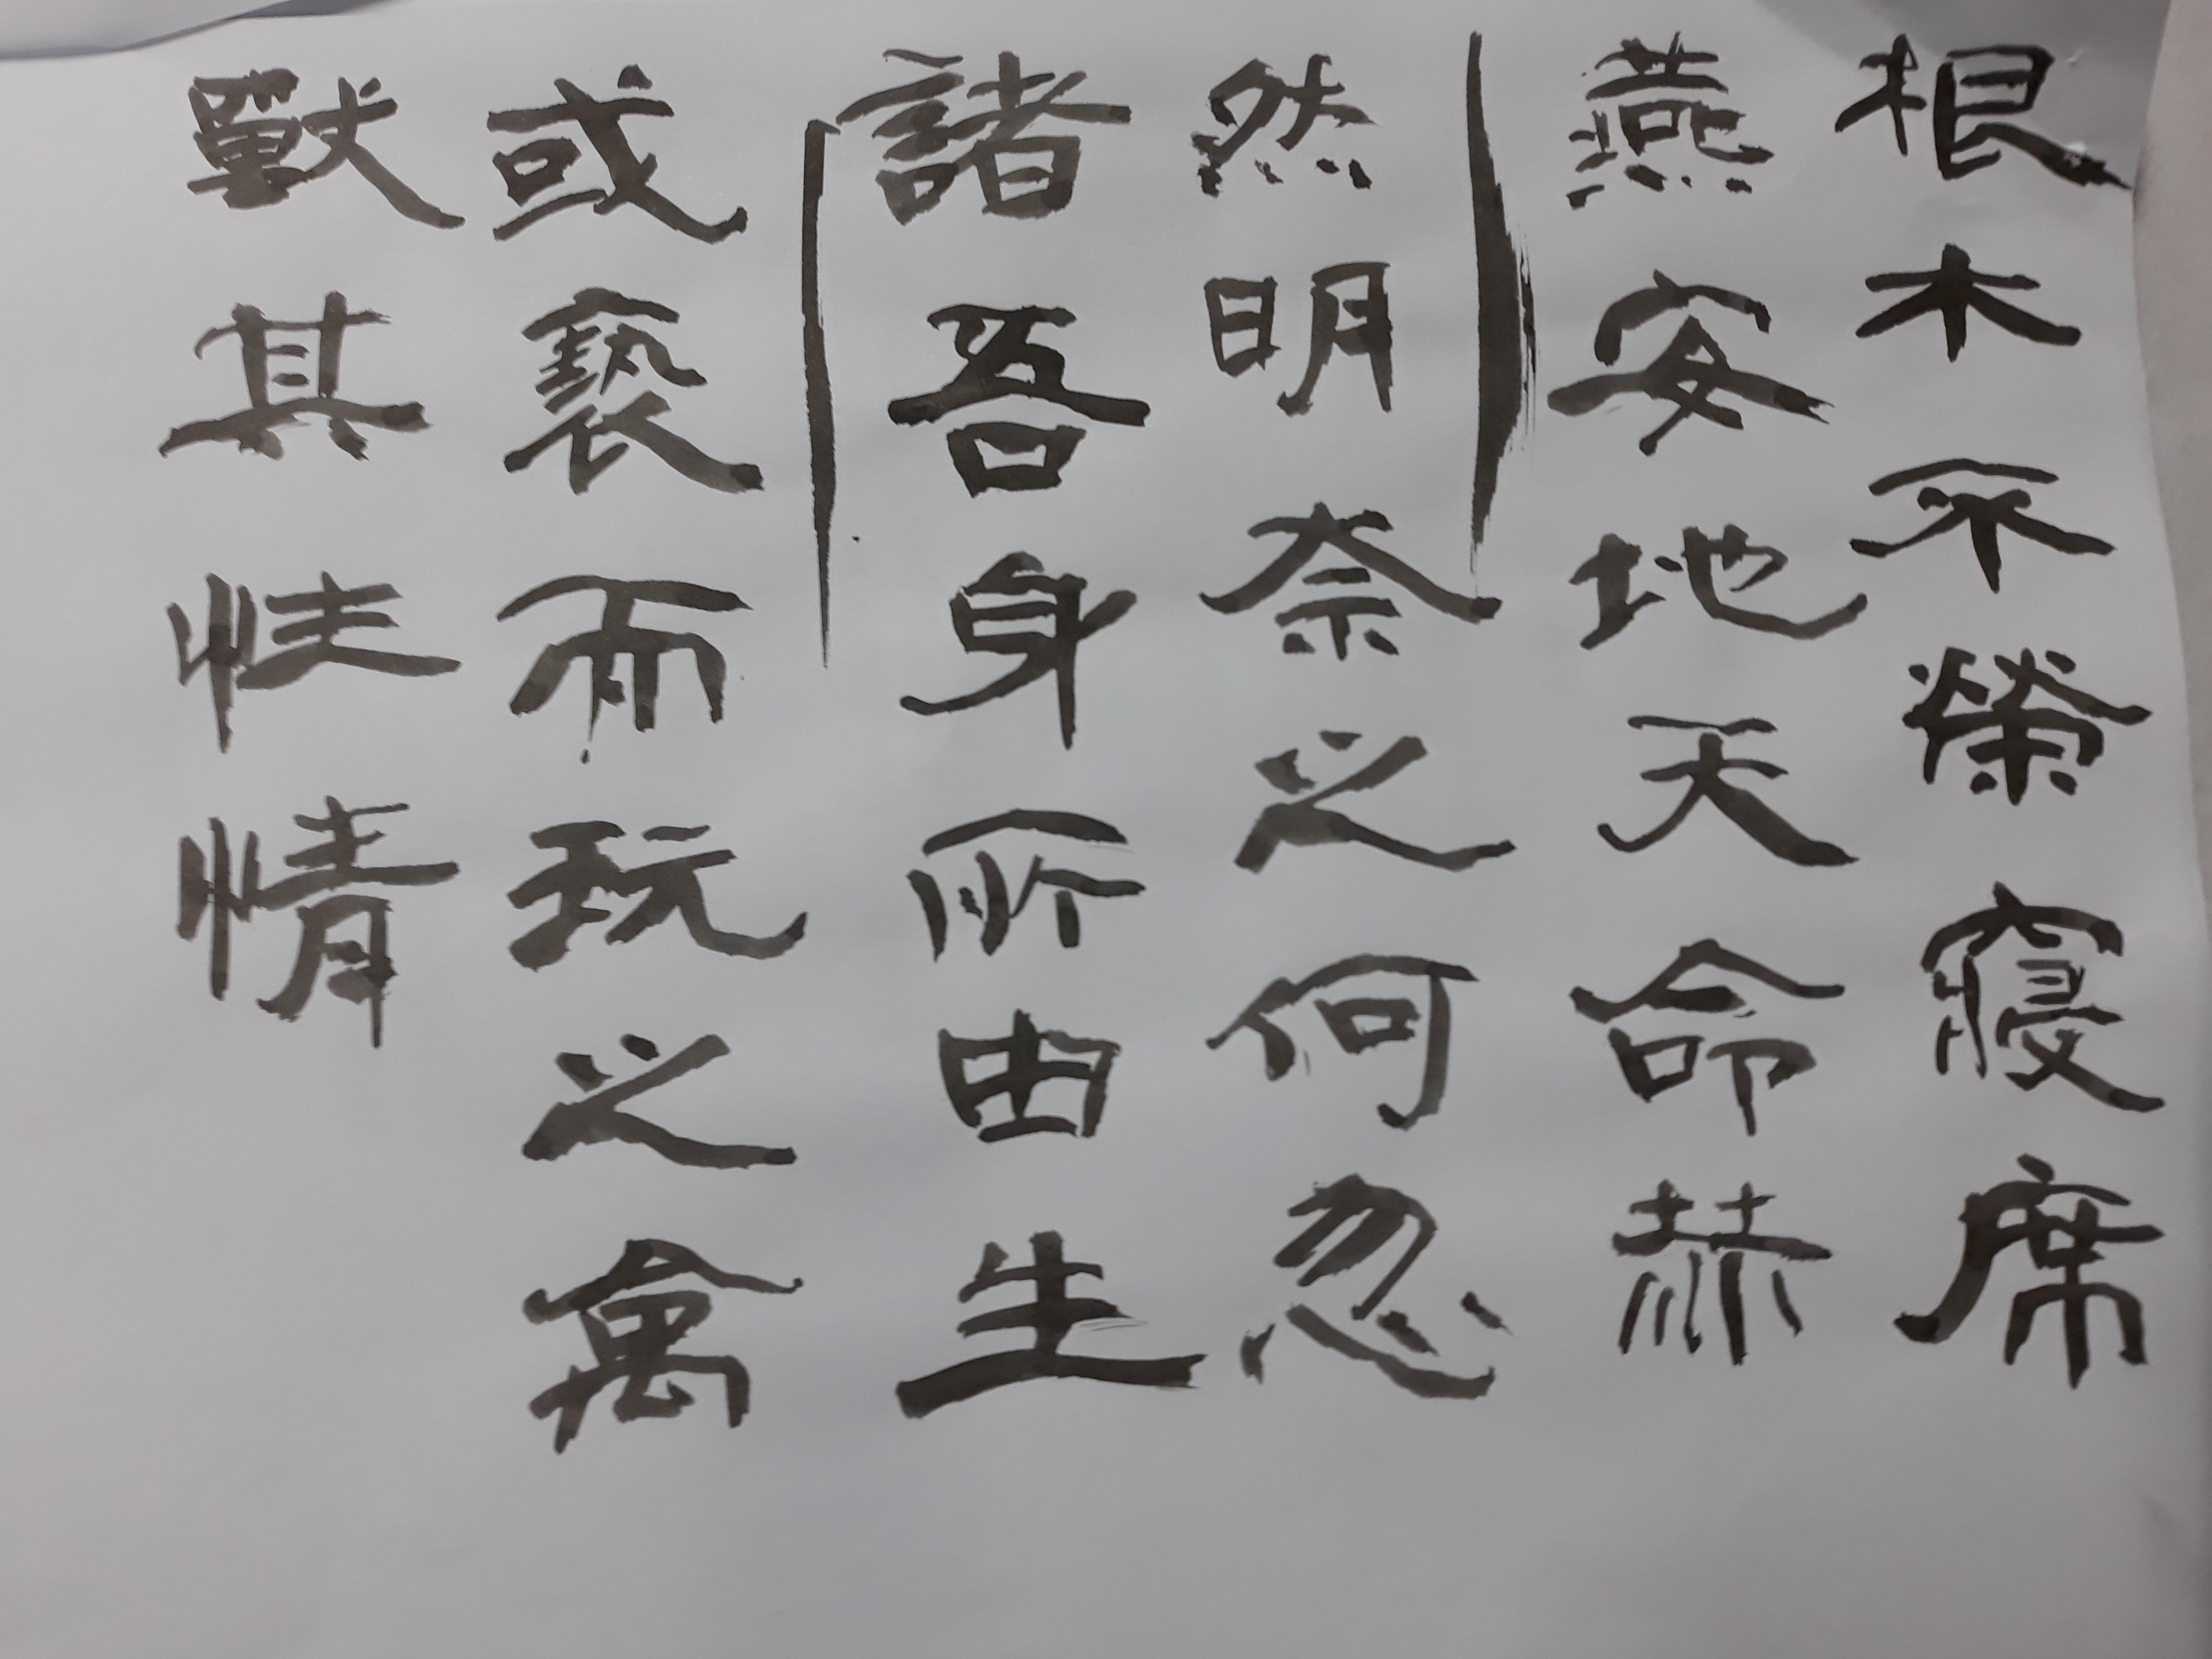 根木不榮寢席
燕安地天命赫
然明奈之何忽
諸吾身所由生
或褻而玩之禽
獸其性情